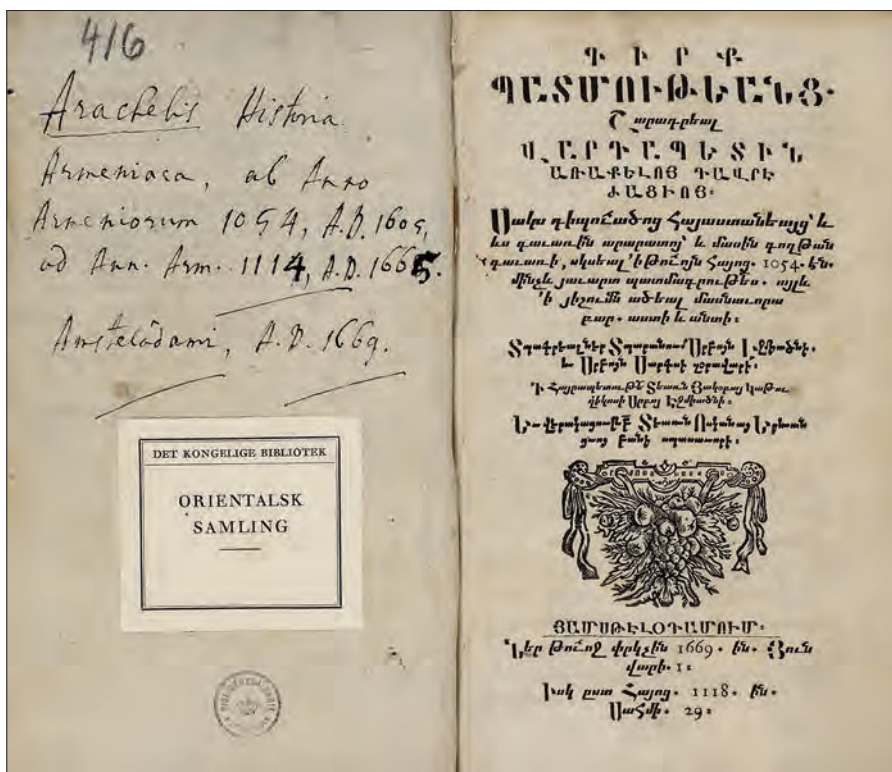 416
Arachelis Historia
Armeniaca, ab Anno
Armeniorum 1054, A.D. 1605,
ad Ann. Arm. 1114, A.D. 1665.
Amstelodami, A.D. 1669.
DET KONGELIGE BIBLIOTEK
ORIENTALSK
SAMLING
ԳԻՐՔ
ՊԱՏՄՈՒԹԵԱՆՑ.
Շարադրեալ
ՎԱՐԴԱՊԵՏԻՆ
ԱՌԱՔԵԼՈՅ ԴԱՎՐԷ
ԺԱՑԻՈՅ.
Սակս դիպուածոց Հայաստանեայց՝ և
ևս գաւառին արարատոյ՝ և մասին գողթան
գաւառի, սկսեալ ՚ի թուոյն Հայոց. 1054. են.
մինչև յաւարտ պատմագրութես. այլև
՚ի յիշումն ածեալ մասնաւորա
բար. աստի և անտի։
Տպագրեալ ներ Տպարանում Սրբոյն Էջմիածնի.
և Սրբոյն Սարգսի զօրավարի.
Ի Հայրապետութե Տեառն Յակոբայ Կաթու
ղիկոսի Սրբոյ Էջմիածնի։
Տեառն Ոսկանայ Երևան
ցւոյ բանի սպասաւորի։
ՅԱՄՍԹԵԼՕԴԱՄՈՒՄ։
Ներ թուոջ փրկչին 1669. ին. Յուն
վարի. 1։
Իսկ ըստ Հայոց. 1118. ին.
Սահմի. 29։